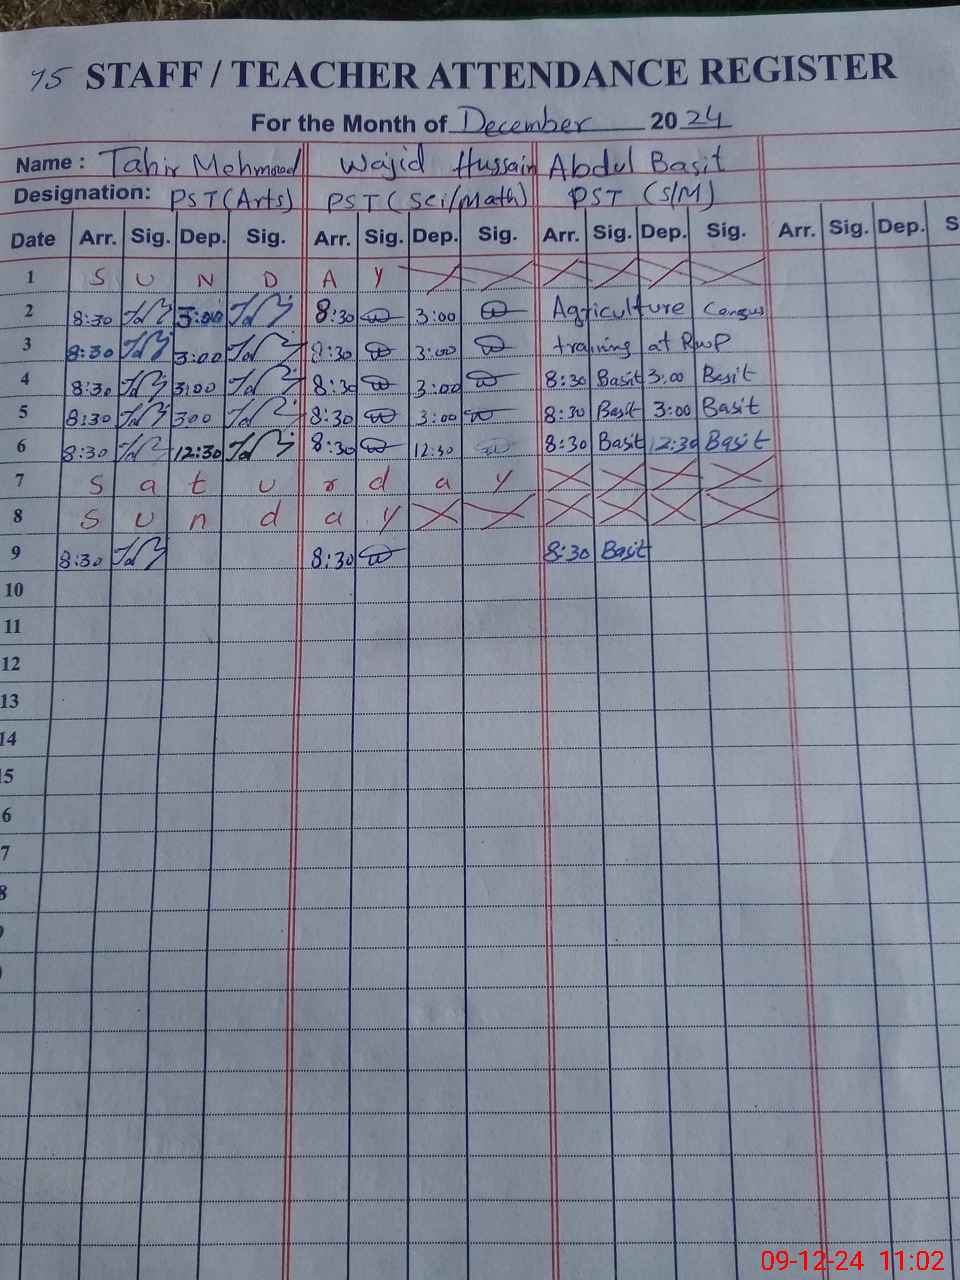 75 STAFF / TEACHER ATTENDANCE REGISTER
For the Month of December 2024
Name : Tahir Mehmood Wajid Hussain Abdul Basit
Designation: PST (Arts) PST (Sci/Math) PST (S/M)
Date Arr. Sig. Dep. Sig. Arr. Sig. Dep. Sig. Arr. Sig. Dep. Sig. Arr. Sig. Dep. S
1 S U N D A Y
2 8:30 3:00 8:30 3:00 Agriculture Census
3 8:30 3:00 8:30 3:00 training at RWP
4 8:30 3:00 8:30 3:00 8:30 Basit 3:00 Basit
5 8:30 300 8:30 3:00 8:30 Basit 3:00 Basit
6 8:30 12:30 8:30 12:30 8:30 Basit 12:30 Basit
7 S a t u r d a y
8 S u n d a y
9 8:30 8:30 8:30 Basit
10
11
12
13
14
15
6
7
8
09-12-24 11:02